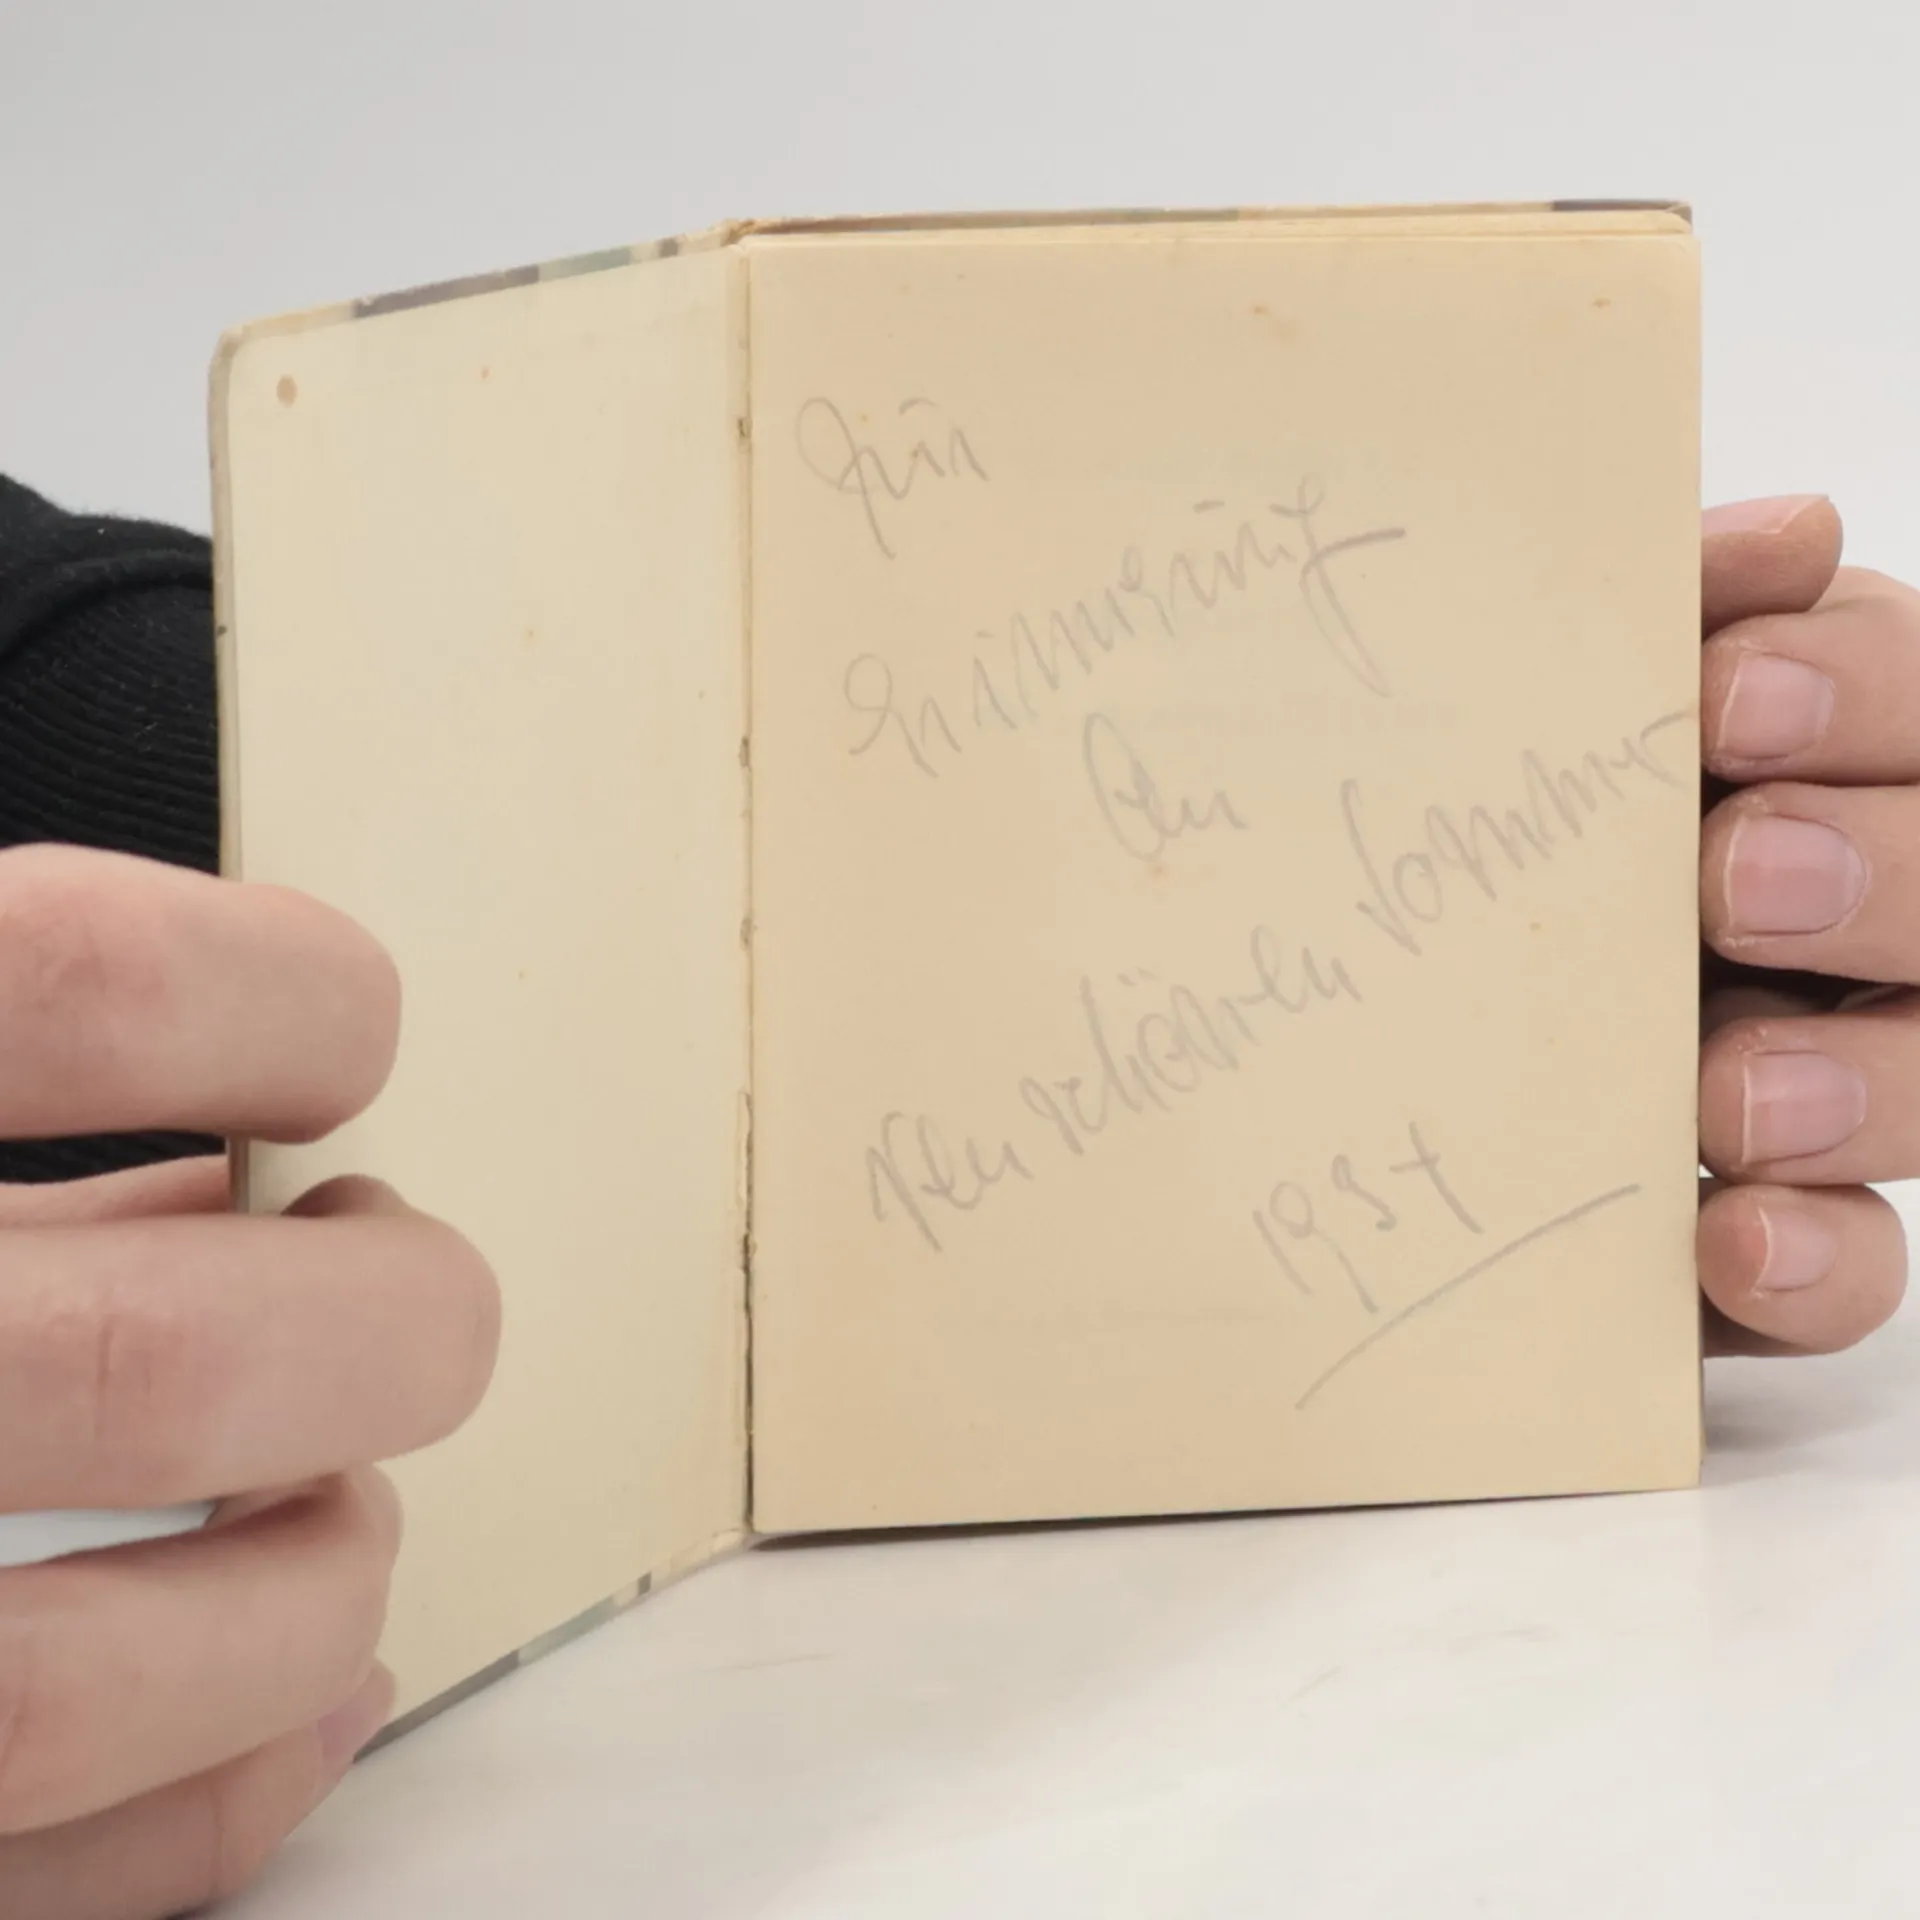 Zur
Erinnerung
an
den schönen Sommer